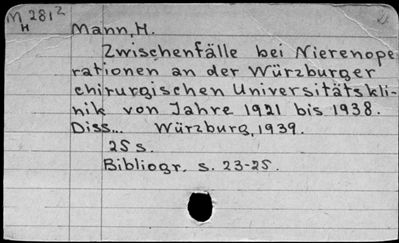 M 281²
H
Mann, H.
Zwischenfälle bei Nierenope
rationen an der Würzburger
chirurgischen Universitätskli-
nik von Jahre 1921 bis 1938.
Diss... Würzburg, 1939.
25 s.
Bibliogr. s. 23-25.